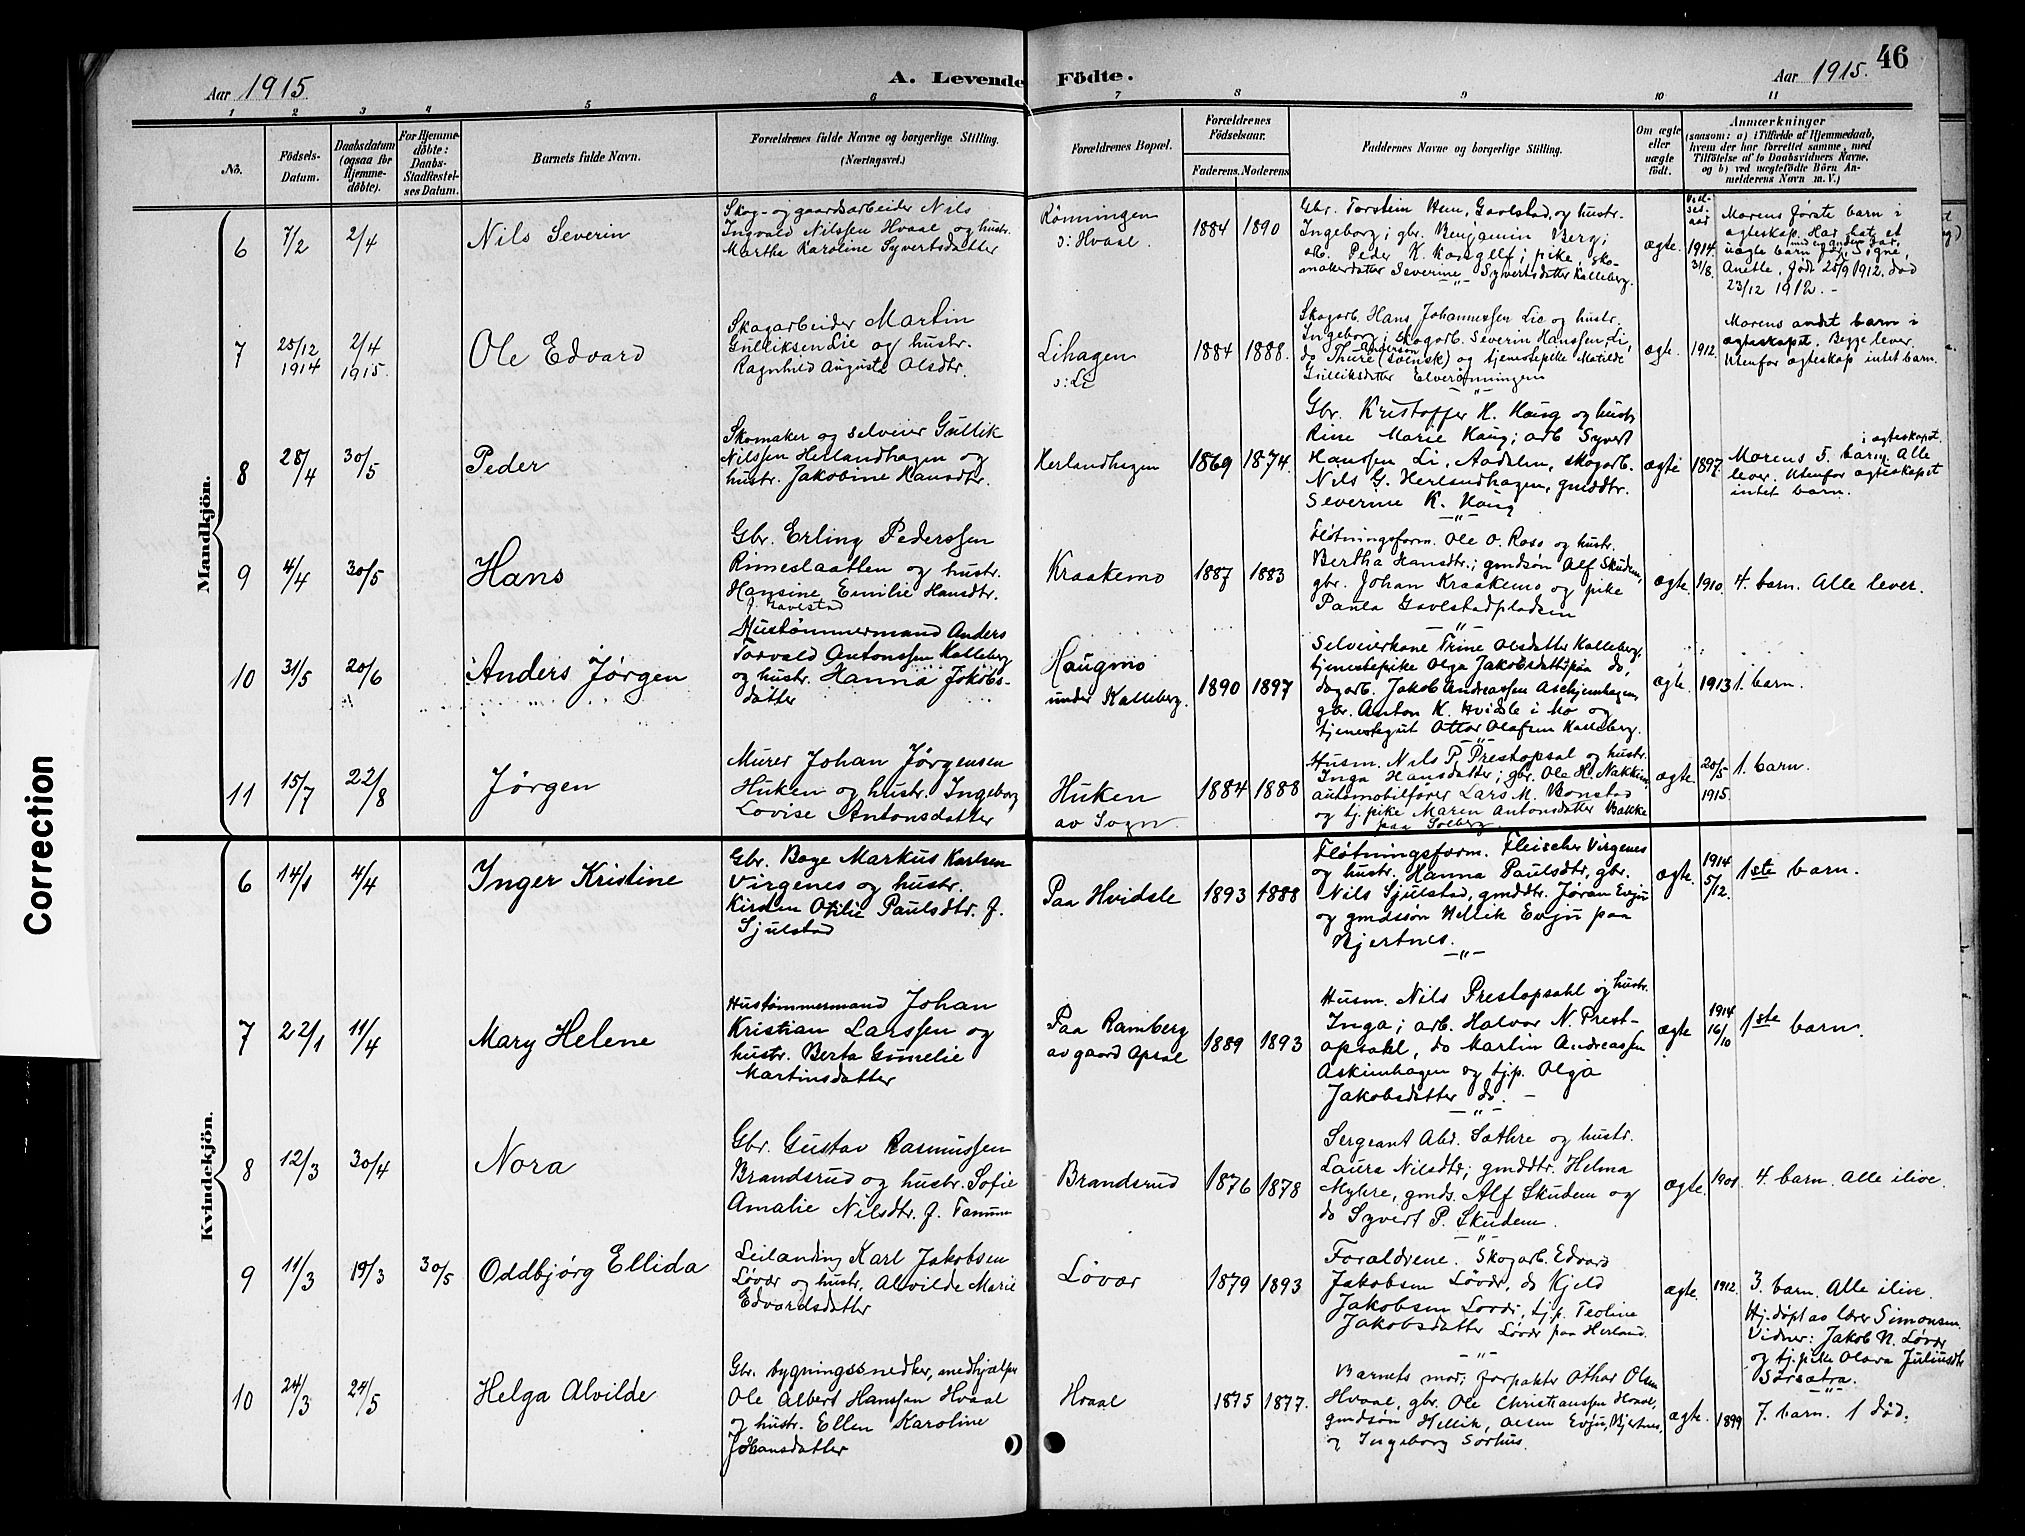 46
Aar 1915.
A. Levende Födte.
Aar 1915.
1 2 3 4 5 6 7 8 9 10 11
No.
Födsels-
Datum.
Daabsdatum
(ogsaa for
Hjemme-
döbte).
For Hjemme-
döbte:
Daabs-
Stadfæstel-
ses Datum.
Barnets fulde Navn.
Forældrenes fulde Navne og borgerlige Stilling.
(Næringsvei.)
Forældrenes Bopæl.
Forældrenes
Födselsaar.
Faderens. Moderens
Faddernes Navne og borgerlige Stilling.
Om ægte
eller
uægte
födt.
Anmærkninger
(saasom: a) i Tilfælde af Hjemmedaab,
hvem der har forrettet samme, med
Tilföielse af to Daabsvidners Navne,
og b) ved uægtefödte Börn An-
melderens Navn m. V.)
Mandkjön.
6
7/2
2/4
Nils Severin
Skog- og gaardsarbeider Nils
Ingvald Nilssen Hvaal og hustr.
Martha Karoline Syvertsdatter
Rønningen
s: Hvaal.
1884 1890
Gbr. Torstein Hem, Gavlstad, og hustr.
Ingeborg; gbr. Benjamin Berg;
arb. Peder K. Kaasgelf; pike, sko-
makerdatter Severine Syvertsdatter Kalleberg.
ægte.
Viel-
ses-
aar
1914.
31/8.
Morens første barn i
ægteskap. Har hat et
uægte barn med en anden far,
Anette, født 25/9 1912. død
23/12 1912. -
7
25/12
1914
2/4
1915.
Ole Edvard
Skogarbeider Martin
Gulliksen Lie og hustr.
Ragnhild Auguste Olsdtr.
Lihagen
s: Li
1884 1888.
Skogarb. Hans Johannessen Lie og hustr.
Ingeborg; Skogarb. Severin Hanssen, Li,
do Thure Anderson (svensk) og tjenestepike Matilde
Gulliksdatter Elverønningen
ægte.
1912.
Morens andet barn i
ægteskapet. Begge lever.
Utenfor ægteskap intet barn.
8
28/4
30/5
Peder
Skomaker og selveier Gullik
Nilssen Herlandhagen og
hustr. Jakobine Hansdtr.
Herlandhagen
1869 1874.
Gbr. Kristoffer H. Haug og hustr.
Rine Marie Haug; arb Syvert
Hanssen Li, Aadalen, skogarb.
Nils G. Herlandhagen, gmddtr.
Severine K. Haug
ægte
1897.
Morens 5. barn i ægteskapet. Alle
lever. Utenfor ægteskapet
intet barn.
9
4/4
30/5
Hans
Gbr. Erling Pederssen
Rimeslaatten og hustr.
Hansine Emilie Hansdtr.
f. Gavlstad
Kraakemo
1887 1883
Fløtningsform. Ole O. Raso og hustr.
Bertha Hansdtr.; gmdsøn Alf Skudem,
gbr. Johan Kraakemo og pike
Paula Gavlstadpladsen
ægte.
1910.
4. barn. Alle lever.
10
31/5
20/6
Anders Jørgen
Hustømmermand Anders
Torvald Antonssen Kalleberg
og hustr. Hanna Jakobs-
datter
Haugmo
under Kalleberg.
1890 1897
Selveierkone Trine Olsdatter Kalleberg,
tjenestepike Olga Jakobsdatter paa do,
dagarb. Jakob Andreassen Askjemhagen,
gbr. Anton K. Hvidsle i Mo og
tjenestegut Ottar Olafsen Kalleberg.
ægte.
1913
1. barn.
11
15/7
22/8
Jørgen
Murer Johan Jørgensen
Huken og hustr. Ingeborg
Lovise Antonsdatter
Huken
av Sogn.
1884 1888
Husm. Nils P. Prestopsal og hustr.
Inga Hansdatter; gbr. Ole H. Nakkim,
automobilfører Lars M. Bonstad
og tj. pike Maren Antonsdatter Bakke
paa Solberg
ægte
20/5
1915.
1. barn.
Kvindekjön.
6
14/1
4/4
Inger Kristine
Gbr. Boge Markus Karlsen
Virgenes og hustr.
Kirsten Otilie Paulsdtr. f.
Sjulstad
Paa Hvidsle
1893 1888
Fløtningsform. Fleischer Virgenes
og hustr. Hanna Paulsdtr, gbr.
Nils Sjulstad, gmddtr. Jøran Evju
og gmdssøn Hellik Evju paa
Bjertnes.
ægte.
1914
5/12.
1ste barn.
7
22/1
11/4
Mary Helene
Hustømmermand Johan
Kristian Larssen og
hustr. Berta Gunelie
Martinsdatter
Paa Ramberg
av gaard Opsal
1889 1893
Husm. Nils Prestopsahl og hustr.
Inga; arb. Halvor N. Prest-
opsahl, do Martin Andreassen
Askimhagen og tj.p. Olga
Jakobsdatter do. -
ægte
1914
16/10
1ste barn.
8
12/3
30/4
Nora
Gbr. Gustav Rasmussen
Brandsrud og hustr. Sofie
Amalie Nilsdtr. f. Tanum
Brandsrud
1876 1878
Sergeant Abr. Sæthre og hustr.
Laura Nilsdtr; gmddtr. Helma
Myhre, gmds. Alf Skudem og
do Syvert P. Skudem.
ægte.
4. barn. Alle ilive.
9
11/3
19/3
30/5
Oddbjørg Ellida
Leilænding Karl Jakobsen
Løvør og hustr. Alvilde Marie
Edvardsdatter
Løvør
1879 1893
Forældrene. Skogarb. Edvard
Jakobsen Løvør, do Kjeld
Jakobsen Løvør, tj.p. Teoline
Jakobsdatter Løvør paa Herland.
ægte.
1912.
3. barn. Alle ilive.
Hj. døpt av lærer Simonsen.
Vidner: Jakob N. Løvør
og tj. pike Olava Juliusdtr
Sørsætra.
10
24/3
24/5
Helga Alvilde
Gbr. bygningssnedker, medhjælper
Ole Albert Hanssen Hvaal
og hustr. Ellen Karoline
Johansdatter
Hvaal
1875 1877.
Barnets mor, forpakter Othar Olsen
Hvaal, gbr. Ole Christianssen Hvaal,
gmdsøn Hellik Olsen Evju, Bjertnes,
og Ingeborg Sørhus.
ægte.
1899
7. barn. 1 død.
Correction